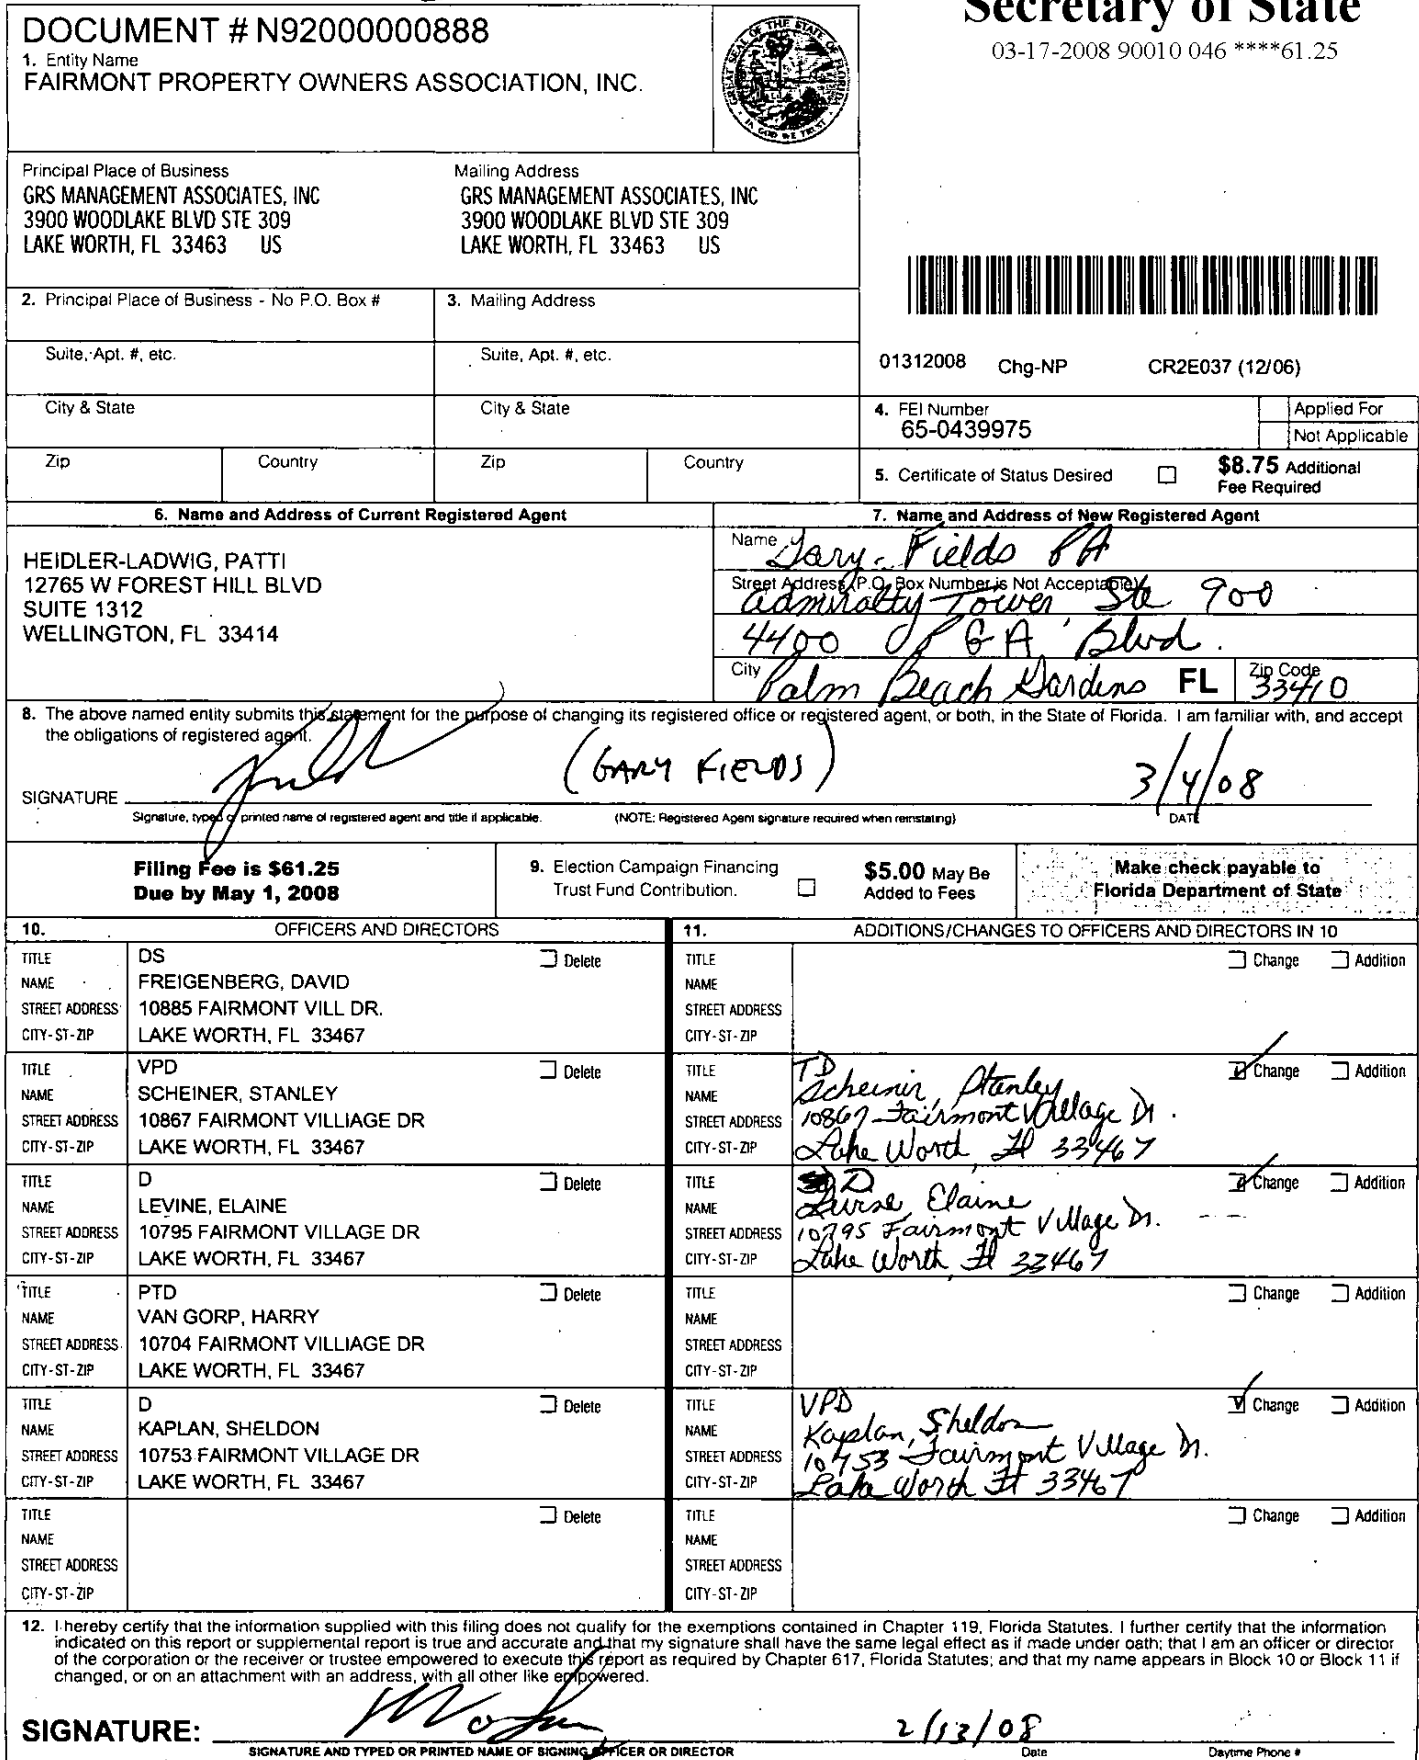 Secretary of State
03-17-2008 90010 046 ****61.25
DOCUMENT # N92000000888
1. Entity Name
FAIRMONT PROPERTY OWNERS ASSOCIATION, INC.
GREAT SEAL OF THE STATE OF FLORIDA
IN GOD WE TRUST
Principal Place of Business
GRS MANAGEMENT ASSOCIATES, INC
3900 WOODLAKE BLVD STE 309
LAKE WORTH, FL 33463 US
Mailing Address
GRS MANAGEMENT ASSOCIATES, INC
3900 WOODLAKE BLVD STE 309
LAKE WORTH, FL 33463 US
2. Principal Place of Business - No P.O. Box #
3. Mailing Address
Suite, Apt. #, etc.
Suite, Apt. #, etc.
01312008 Chg-NP CR2E037 (12/06)
City & State
City & State
4. FEI Number
65-0439975
Applied For
Not Applicable
Zip Country Zip Country
5. Certificate of Status Desired
$8.75 Additional
Fee Required
6. Name and Address of Current Registered Agent
HEIDLER-LADWIG, PATTI
12765 W FOREST HILL BLVD
SUITE 1312
WELLINGTON, FL 33414
7. Name and Address of New Registered Agent
Name Gary Fields PA
Street Address (P.O. Box Number is Not Acceptable)
Admiralty Tower Ste 900
4400 PGA Blvd.
City Palm Beach Gardens FL Zip Code 33410
8. The above named entity submits this statement for the purpose of changing its registered office or registered agent, or both, in the State of Florida. I am familiar with, and accept
the obligations of registered agent.
SIGNATURE (GARY FIELDS) 3/4/08
Signature, typed or printed name of registered agent and title if applicable. (NOTE: Registered Agent signature required when reinstating) DATE
Filing Fee is $61.25
Due by May 1, 2008
9. Election Campaign Financing
Trust Fund Contribution.
$5.00 May Be
Added to Fees
Make check payable to
Florida Department of State
10. OFFICERS AND DIRECTORS
11. ADDITIONS/CHANGES TO OFFICERS AND DIRECTORS IN 10
TITLE DS Delete
NAME FREIGENBERG, DAVID
STREET ADDRESS 10885 FAIRMONT VILL DR.
CITY-ST-ZIP LAKE WORTH, FL 33467
TITLE Change Addition
NAME
STREET ADDRESS
CITY-ST-ZIP
TITLE VPD Delete
NAME SCHEINER, STANLEY
STREET ADDRESS 10867 FAIRMONT VILLIAGE DR
CITY-ST-ZIP LAKE WORTH, FL 33467
TITLE TD Change Addition
NAME Scheinir, Stanley
STREET ADDRESS 10867 Fairmont Village Dr.
CITY-ST-ZIP Lake Worth, Fl 33467
TITLE D Delete
NAME LEVINE, ELAINE
STREET ADDRESS 10795 FAIRMONT VILLAGE DR
CITY-ST-ZIP LAKE WORTH, FL 33467
TITLE D Change Addition
NAME Levine, Elaine
STREET ADDRESS 10795 Fairmont Village Dr.
CITY-ST-ZIP Lake Worth, Fl 33467
TITLE PTD Delete
NAME VAN GORP, HARRY
STREET ADDRESS 10704 FAIRMONT VILLIAGE DR
CITY-ST-ZIP LAKE WORTH, FL 33467
TITLE Change Addition
NAME
STREET ADDRESS
CITY-ST-ZIP
TITLE D Delete
NAME KAPLAN, SHELDON
STREET ADDRESS 10753 FAIRMONT VILLAGE DR
CITY-ST-ZIP LAKE WORTH, FL 33467
TITLE VPD Change Addition
NAME Kaplan, Sheldon
STREET ADDRESS 10753 Fairmont Village Dr.
CITY-ST-ZIP Lake Worth Fl 33467
TITLE Delete
NAME
STREET ADDRESS
CITY-ST-ZIP
TITLE Change Addition
NAME
STREET ADDRESS
CITY-ST-ZIP
12. I hereby certify that the information supplied with this filing does not qualify for the exemptions contained in Chapter 119, Florida Statutes. I further certify that the information
indicated on this report or supplemental report is true and accurate and that my signature shall have the same legal effect as if made under oath; that I am an officer or director
of the corporation or the receiver or trustee empowered to execute this report as required by Chapter 617, Florida Statutes; and that my name appears in Block 10 or Block 11 if
changed, or on an attachment with an address, with all other like empowered.
SIGNATURE: 2/13/08
SIGNATURE AND TYPED OR PRINTED NAME OF SIGNING OFFICER OR DIRECTOR Date Daytime Phone #